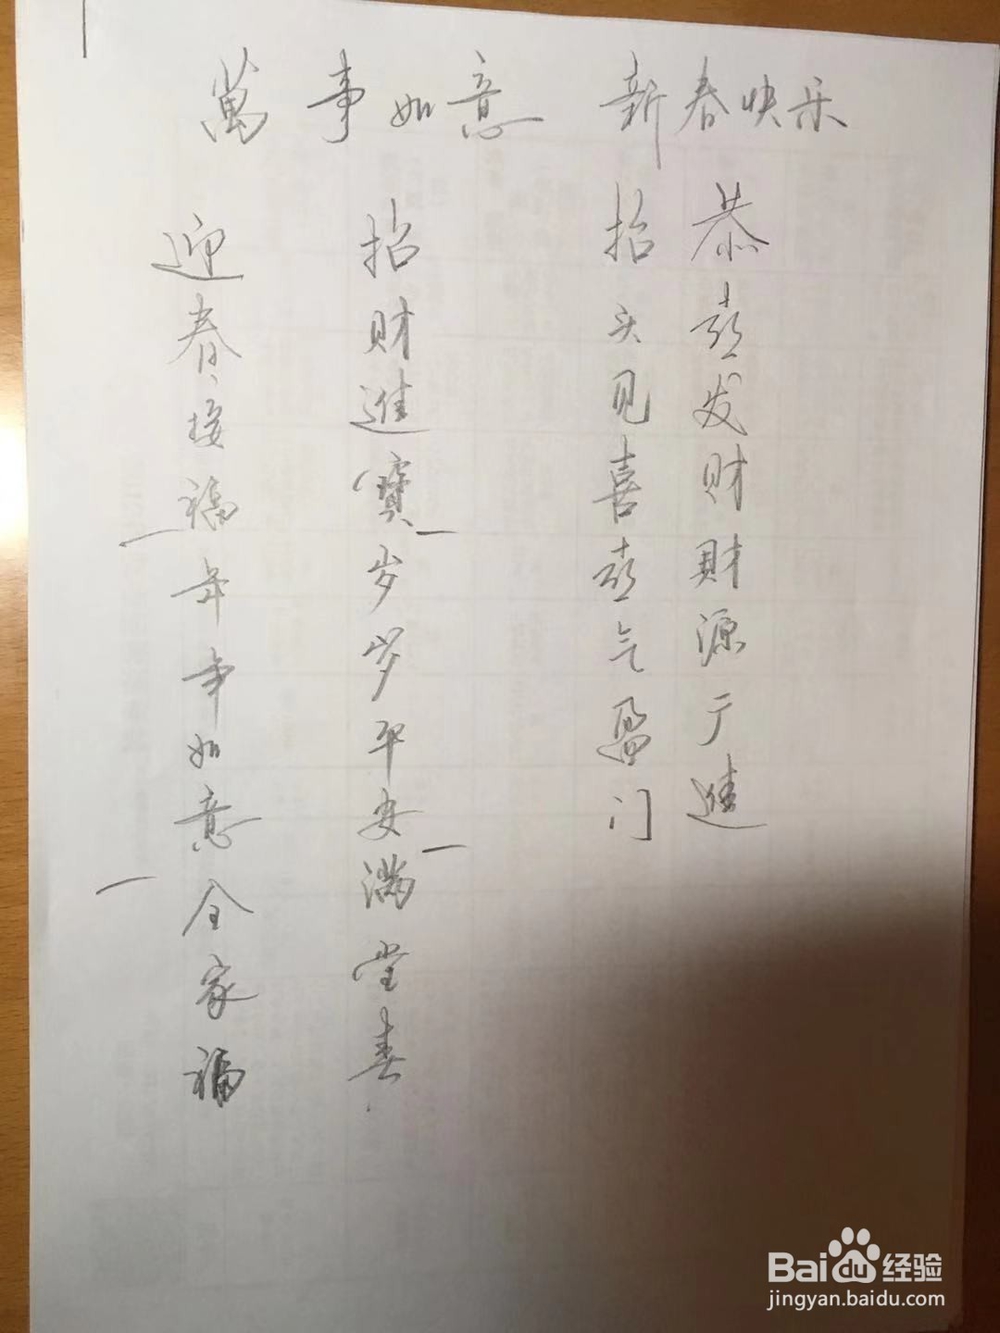 萬事如意 新春快乐
恭喜发财财源广進
抬头见喜喜气盈门
招财進寶岁岁平安满堂春
迎春接福年年如意全家福
Baidu经验
jingyan.baidu.com